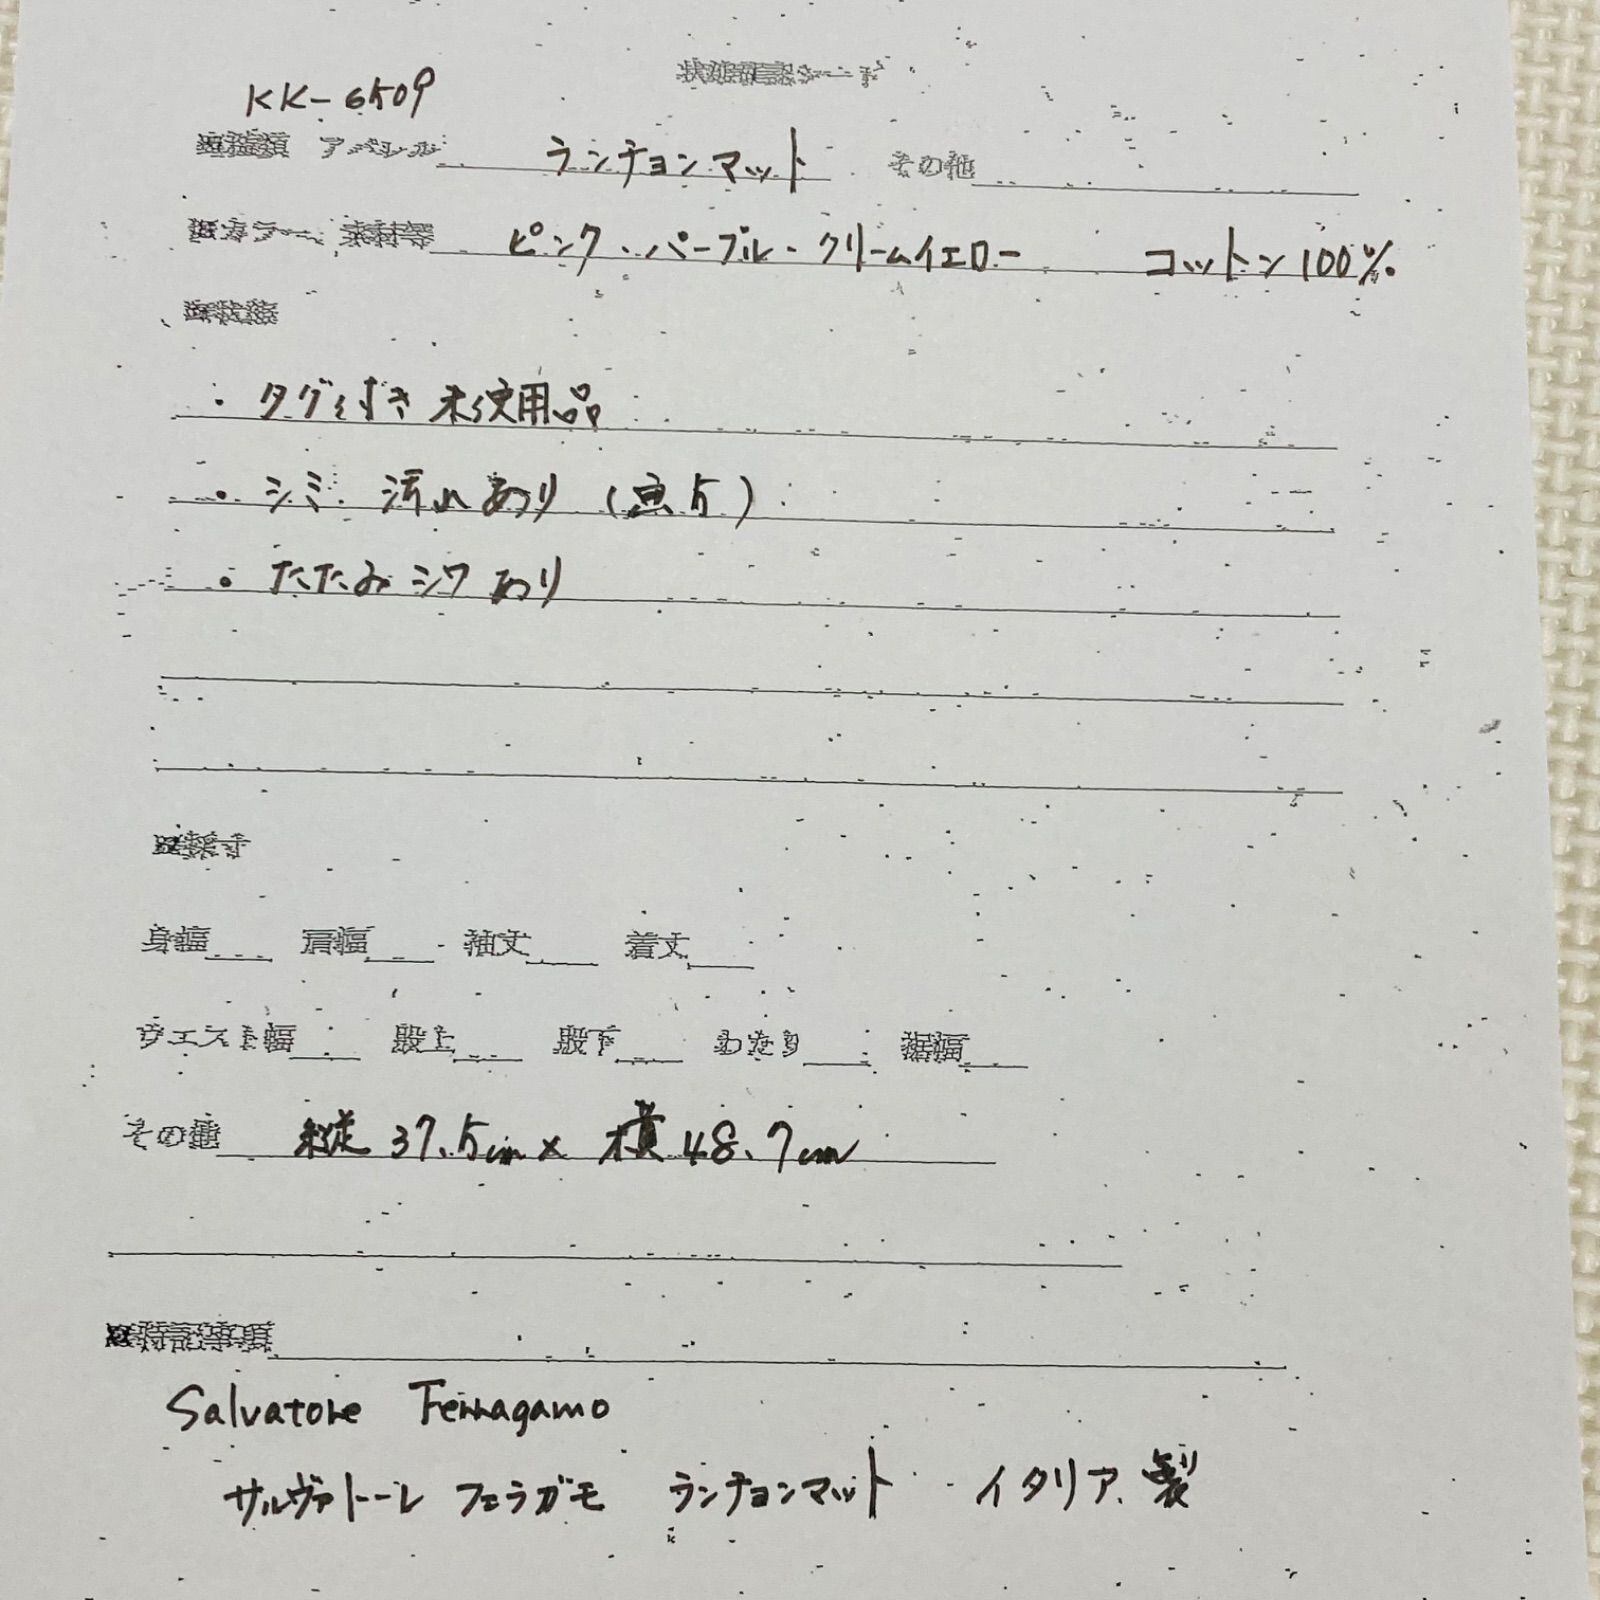 状態確認シート
KK-6509
■種類 アパレル ランチョンマット その他
■カラー、素材等 ピンク・パープル・クリームイエロー コットン100%
■状態
・タグ付き未使用品
・シミ・汚れあり(点5)
・たたみシワあり
■採寸
身幅 肩幅 袖丈 着丈
ウエスト幅 股上 股下 わたり 裾幅
その他 縦37.5cm×横48.7cm
■特記事項
Salvatore Ferragamo
サルヴァトーレ フェラガモ ランチョンマット イタリア製